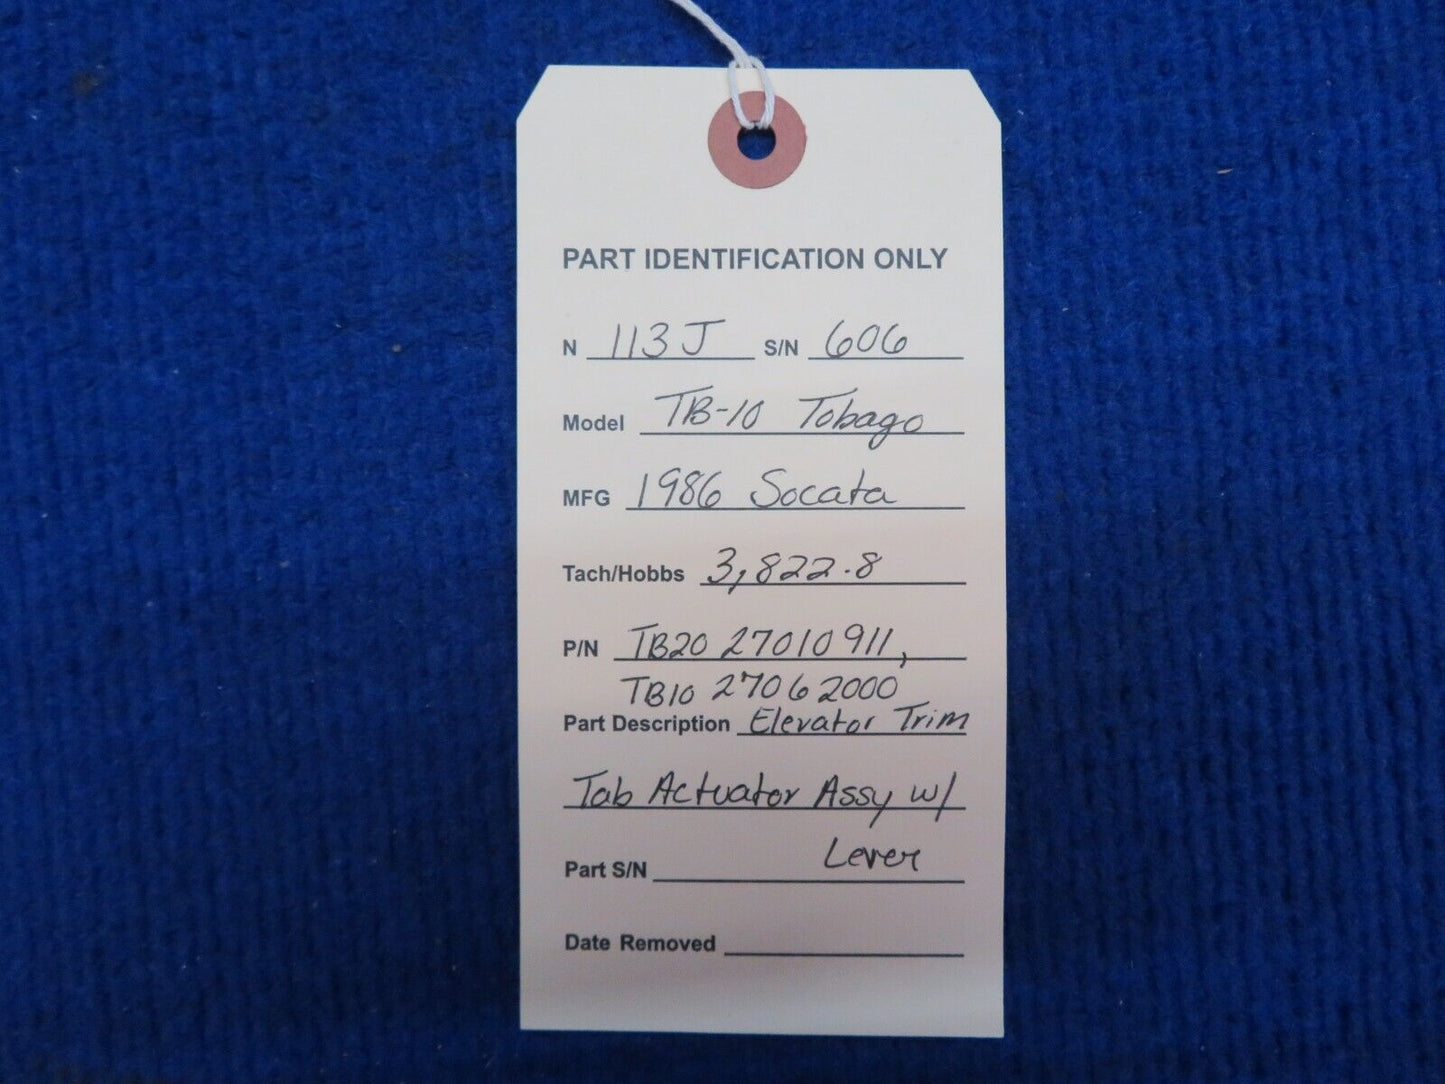 PART IDENTIFICATION ONLY
N 113J S/N 606
Model TB-10 Tobago
MFG 1986 Socata
Tach/Hobbs 3,822.8
P/N TB20 27010911,
TB10 27062000
Part Description Elevator Trim
Tab Actuator Assy w/
Lever
Part S/N
Date Removed